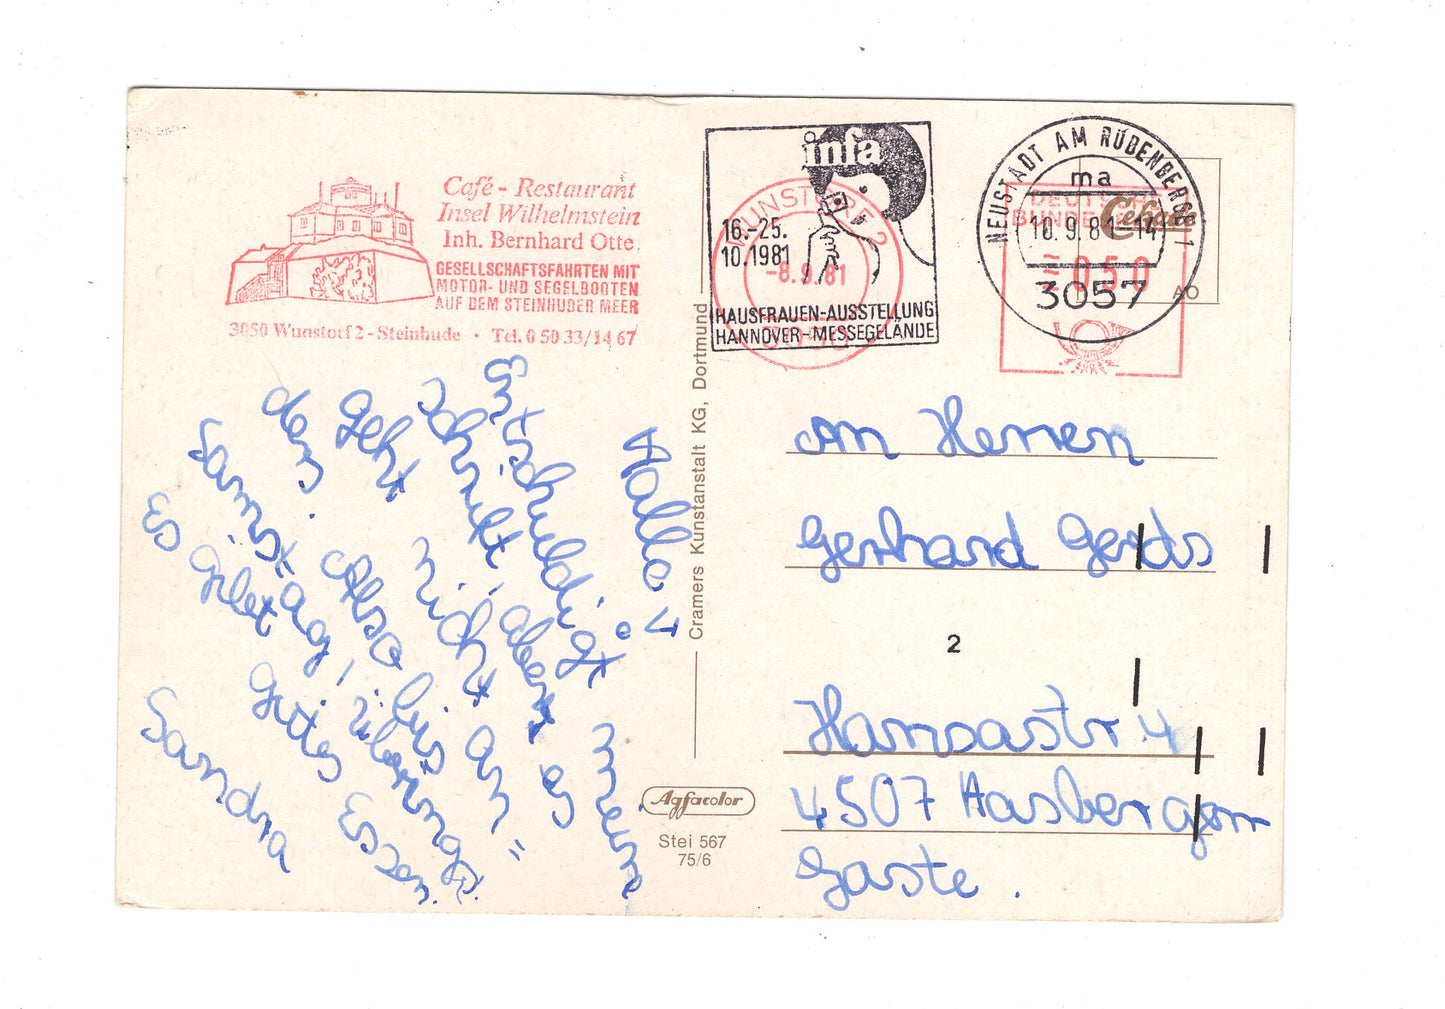 Café - Restaurant
Insel Wilhelmstein
Inh. Bernhard Otte
GESELLSCHAFTSFAHRTEN MIT
MOTOR- UND SEGELBOOTEN
AUF DEM STEINHUDER MEER
3050 Wunstorf 2 - Steinhude · Tel. 0 50 33/14 67
infa
16.-25.
10.1981
HAUSFRAUEN-AUSSTELLUNG
HANNOVER-MESSEGELÄNDE
WUNSTORF 2
-8.9.81
3050
NEUSTADT AM RÜBENBERGE 1
ma
10.9.81-14
3057
DEUTSCHE
BUNDESPOST
050
AO
Hallo!
Entschuldigt meine
Schrift, aber es
geht nicht an=
ders. Also bis
Samstag, übrings:
Es gibt gutes Essen.
Sandra
Cramers Kunstanstalt KG, Dortmund
Agfacolor
Stei 567
75/6
An Herren
Gerhard Gerds
2
Hansastr. 4
4507 Hasbergen
Gaste.